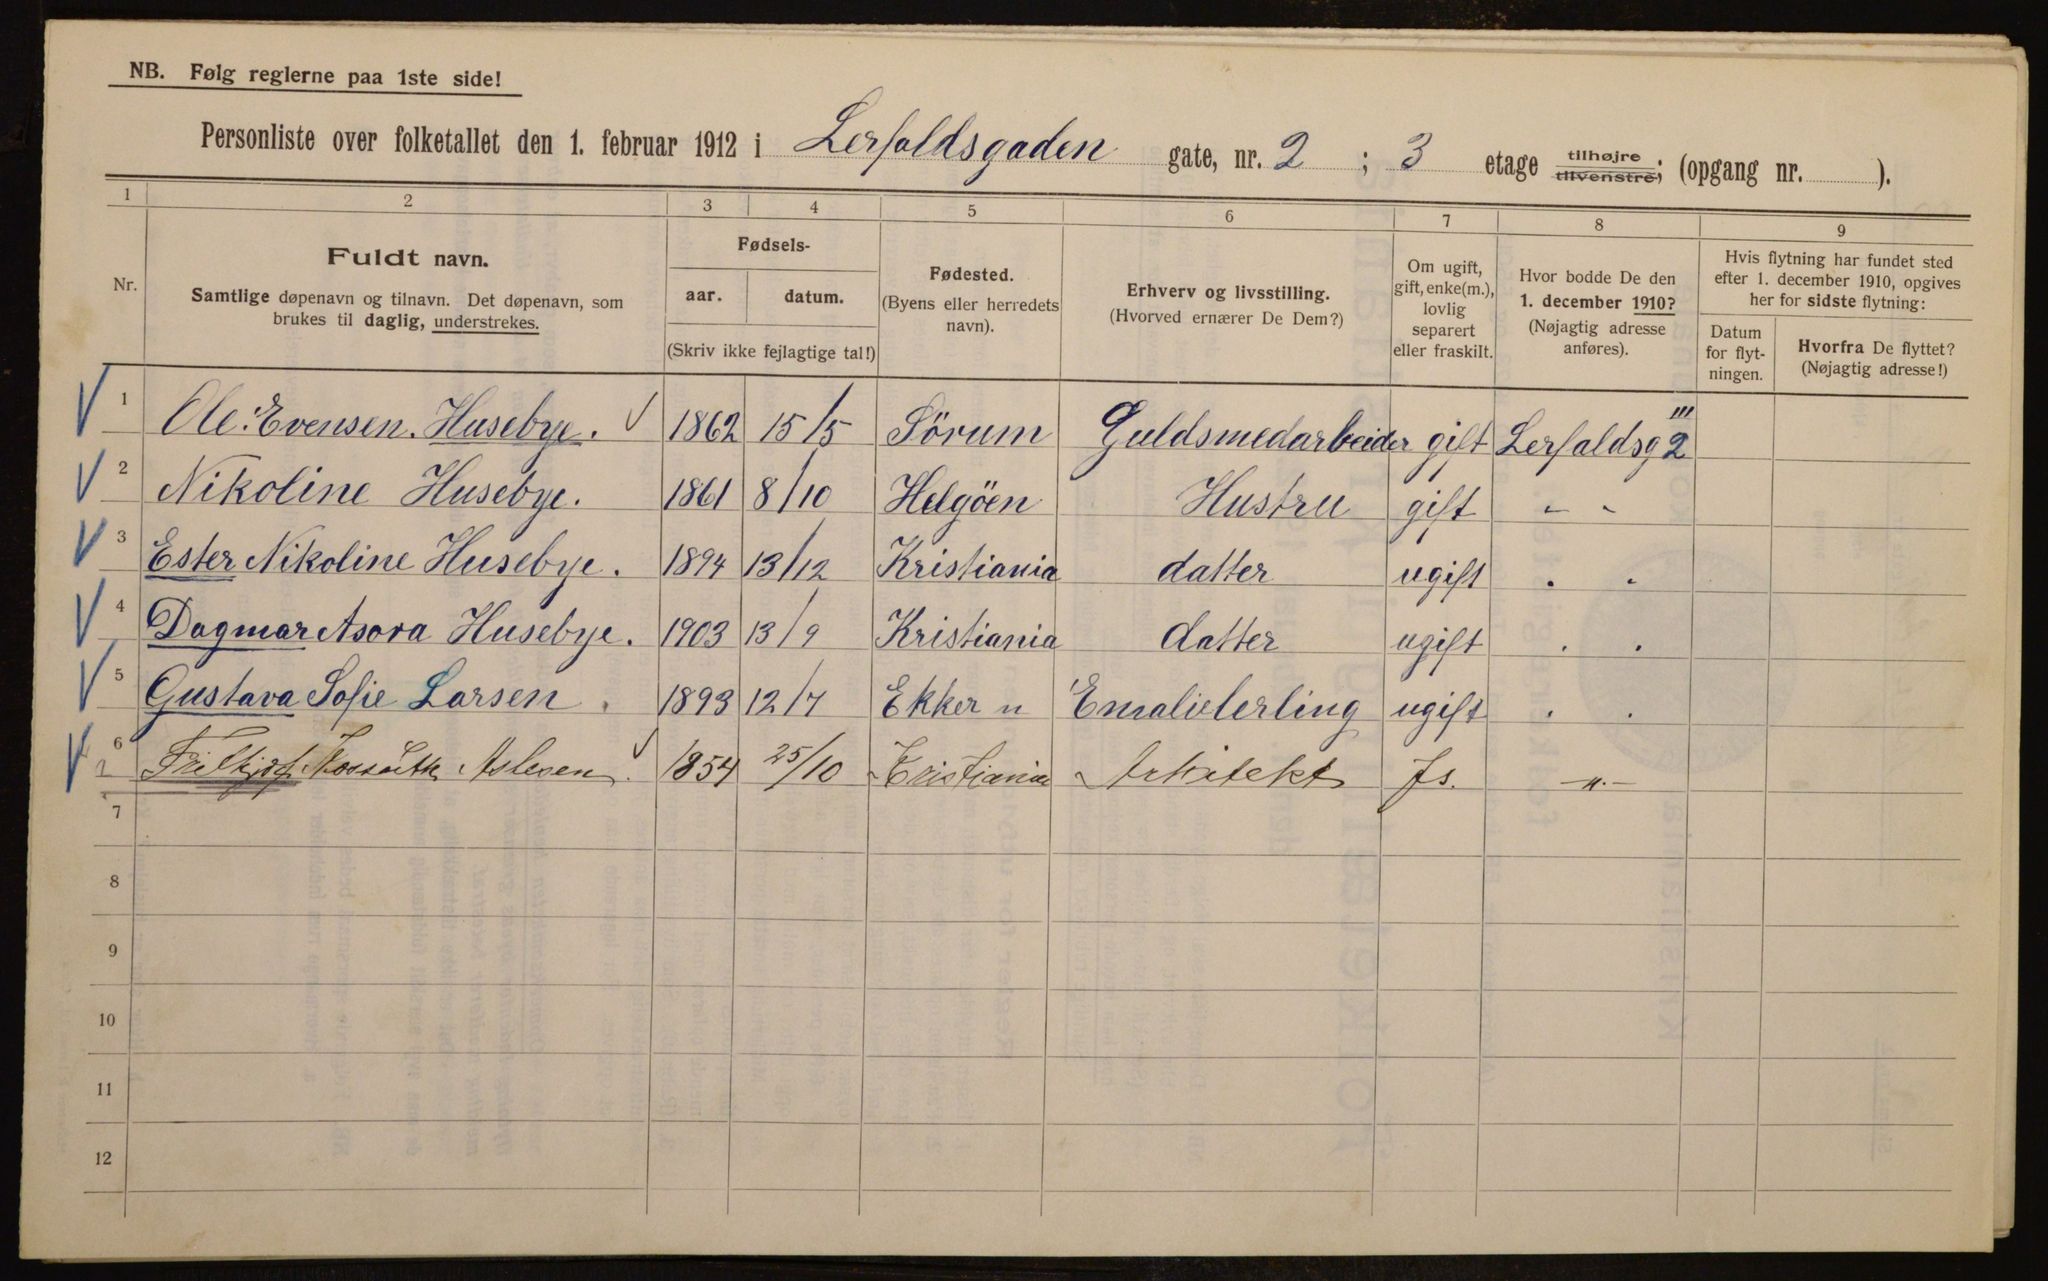 NB. Følg reglerne paa 1ste side!
Personliste over folketallet den 1. februar 1912 i Lerfaldsgaden gate, nr. 2 ; 3 etage tilhøjre tilvenstre; (opgang nr. ).
1 2 3 4 5 6 7 8 9
Nr.
Fuldt navn.
Samtlige døpenavn og tilnavn. Det døpenavn, som
brukes til daglig, understrekes.
Fødsels-
aar. datum.
(Skriv ikke fejlagtige tal!)
Fødested.
(Byens eller herredets
navn).
Erhverv og livsstilling.
(Hvorved ernærer De Dem?)
Om ugift,
gift, enke(m.),
lovlig
separert
eller fraskilt.
Hvor bodde De den
1. december 1910?
(Nøjagtig adresse
anføres).
Hvis flytning har fundet sted
efter 1. december 1910, opgives
her for sidste flytning:
Datum
for flyt-
ningen.
Hvorfra De flyttet?
(Nøjagtig adresse!)
1 Ole Evensen Husebye. 1862 15/5 Sörum Guldsmedarbeider gift Lerfaldsg 2 III
2 Nikoline Husebye. 1861 8/10 Helgöen Hustru gift " "
3 Ester Nikoline Husebye. 1894 13/12 Kristiania datter ugift " "
4 Dagmar Asora Husebye. 1903 13/9 Kristiania datter ugift " "
5 Gustava Sofie Larsen. 1893 12/7 Ekker n Emalielerling ugift " "
6 Aslesen 1854 25/10 Kristiania Arkitekt fs. —"—
7
8
9
10
11
12